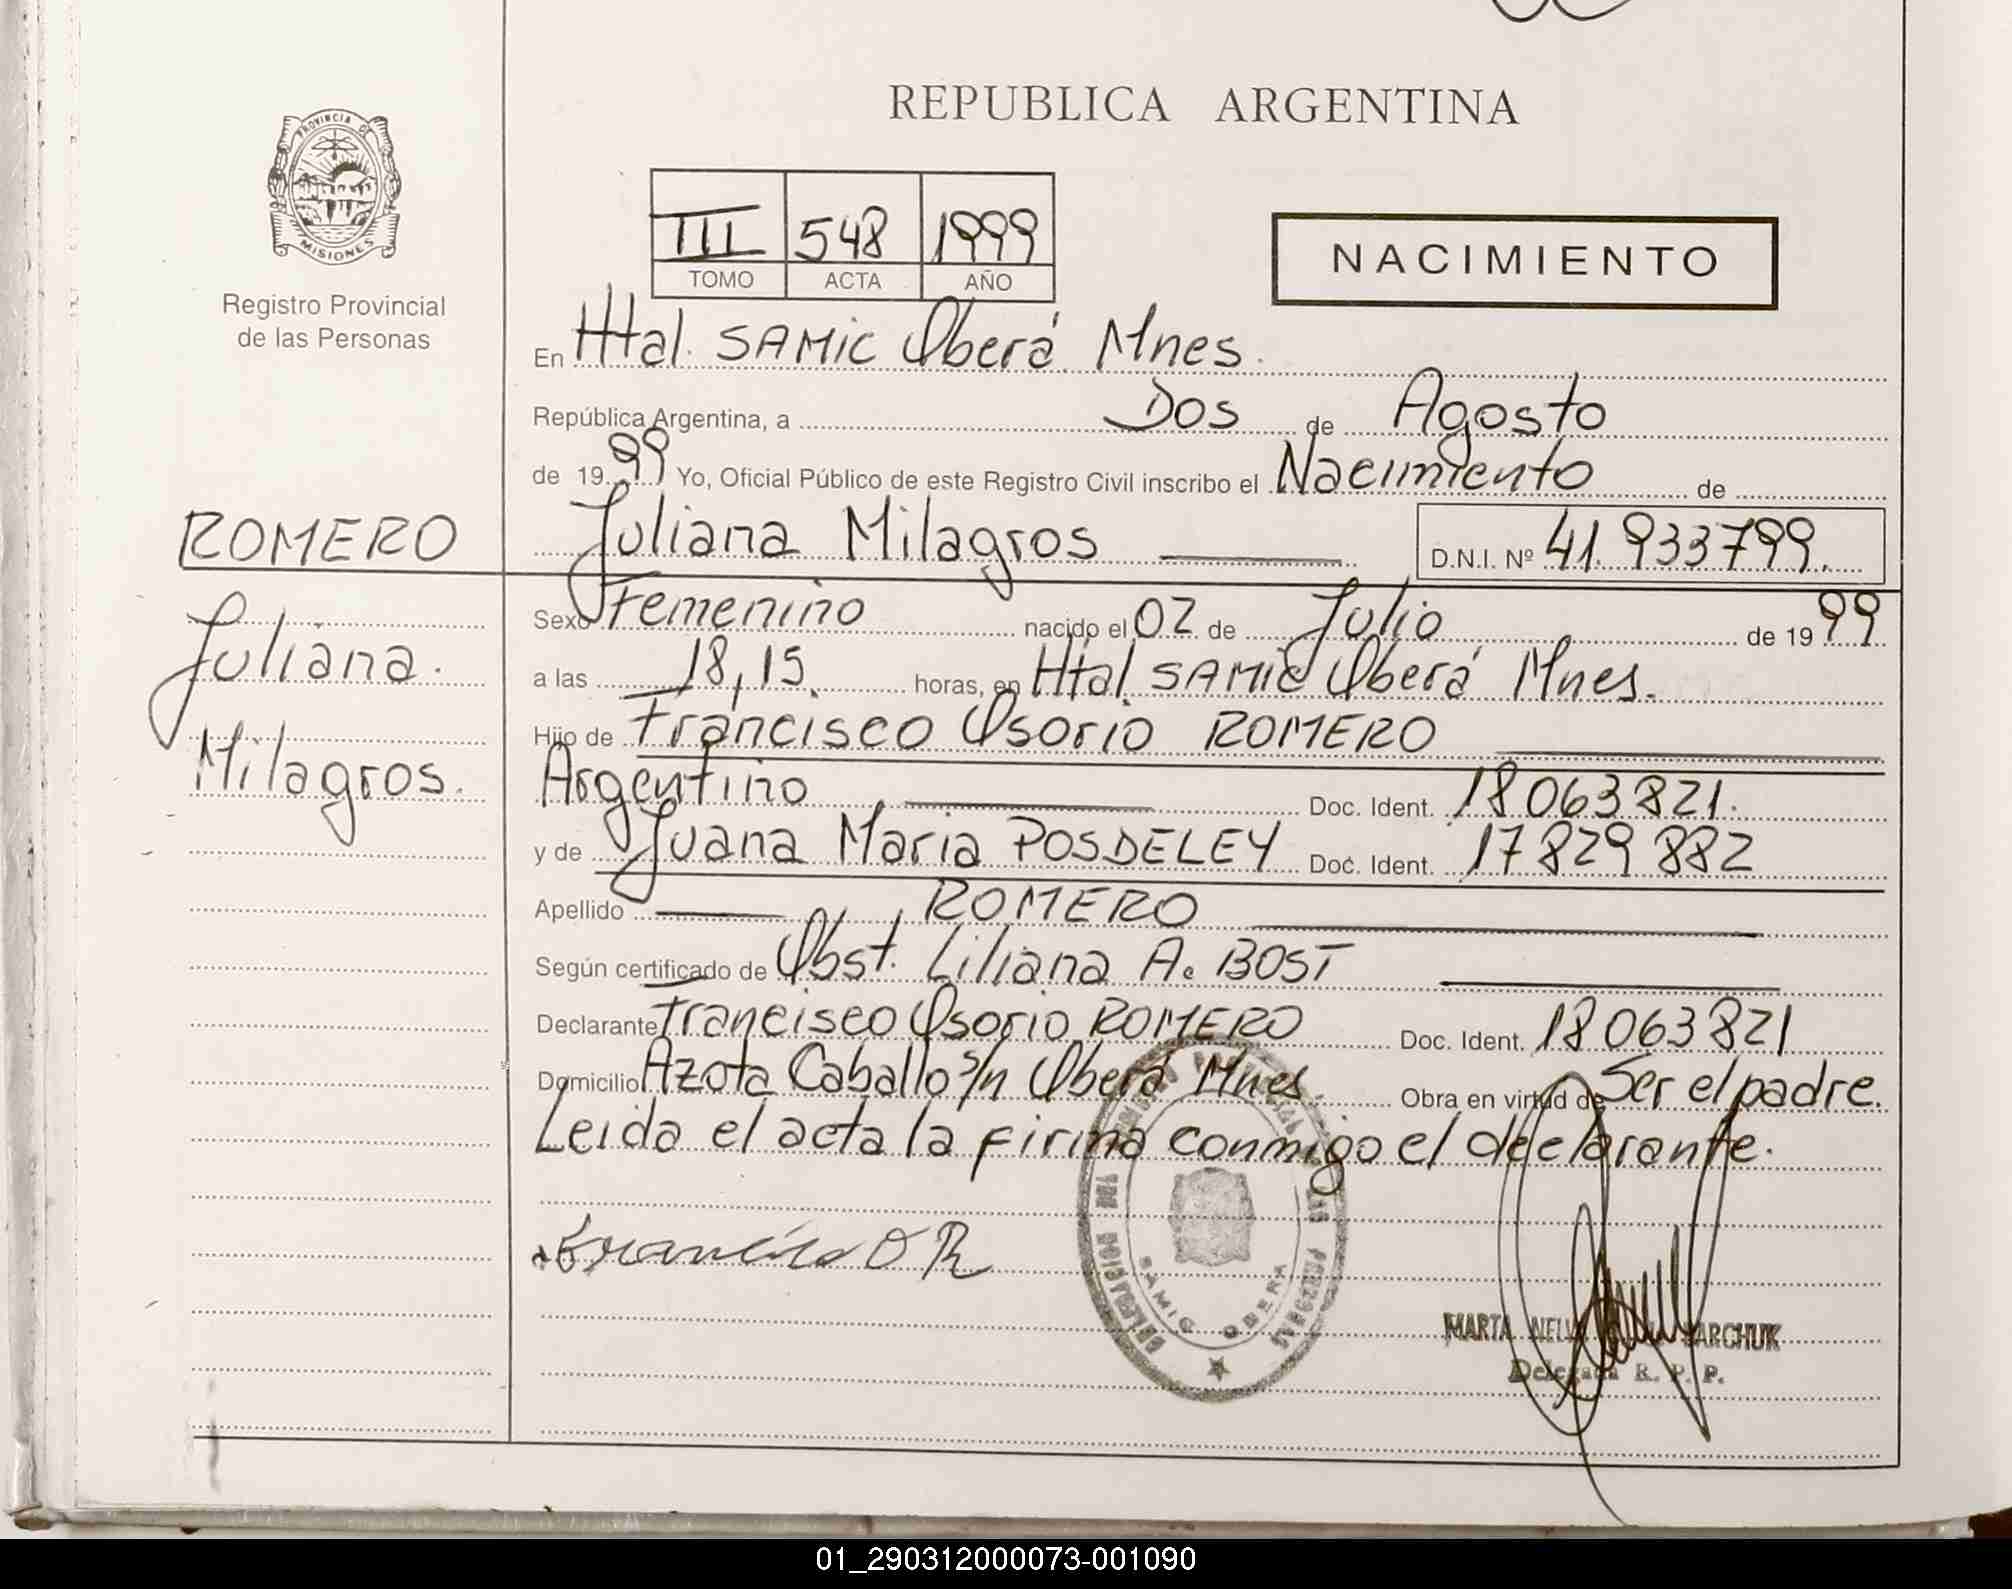 REPUBLICA ARGENTINA
PROVINCIA DE
MISIONES
Registro Provincial
de las Personas
III 548 1999
TOMO ACTA AÑO
NACIMIENTO
En Htal. SAMIC Oberá Mnes.
República Argentina, a Dos de Agosto
de 1999 Yo, Oficial Público de este Registro Civil inscribo el Nacimiento de
ROMERO
Juliana Milagros D.N.I. Nº 41.933799.
Juliana.
Milagros.
Sexo Femenino nacido el 02 de Julio de 1999
a las 18,15 horas, en Htal SAMIC Oberá Mnes.
Hijo de Francisco Osorio ROMERO
Argentino Doc. Ident. 18063821.
y de Juana Maria POSDELEY Doc. Ident. 17829882
Apellido ROMERO
Según certificado de Obst. Liliana A. BOST
Declarante Francisco Osorio ROMERO Doc. Ident. 18063821
Domicilio Azota Caballo s/n Oberá Mnes Obra en virtud de Ser el padre.
Leida el acta la firma conmigo el declarante.
Francisco O R
SAMIC OBERA
MARTA ARCHUK
Delegada R. P. P.
01_290312000073-001090